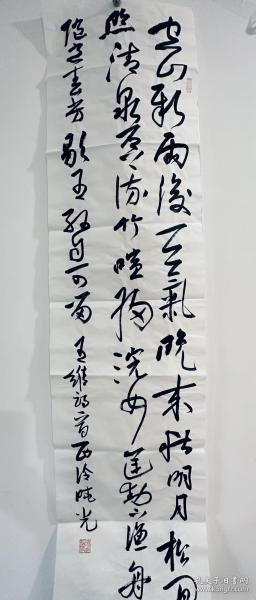 空山新雨後天氣晚來秋明月松間
照清泉石上流竹喧歸浣女蓮動下漁舟
隨意春芳歇王孫自可留 王維詩一首西泠光